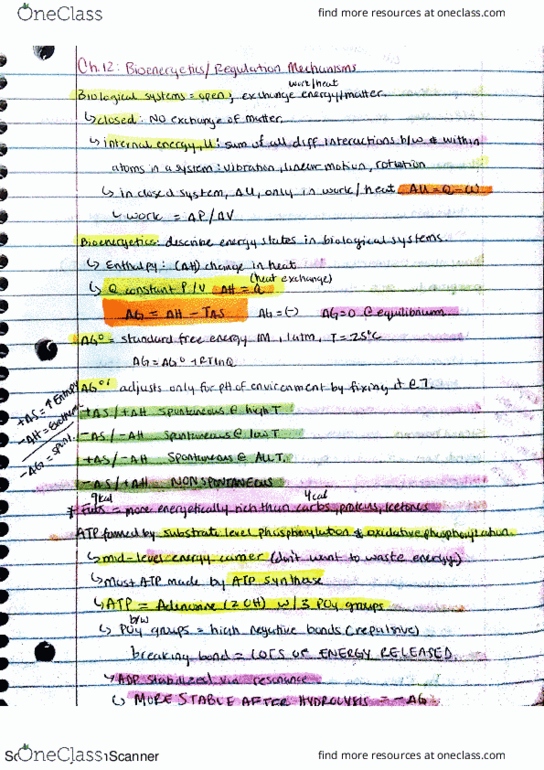 OneClass
find more resources at oneclass.com
Ch.12: Bioenergetics/Regulation Mechanisms
work/heat
Biological systems = open; exchange energy/matter.
↳ closed: NO exchange of matter.
↳ internal energy, U: sum of all diff interactions b/w & within
atoms in a system: vibration, linear motion, rotation
↳ in closed system, ΔU, only in work/heat ΔU = Q - W
↳ work = ΔP/ΔV
Bioenergetics: describe energy states in biological systems.
↳ Enthalpy: (ΔH) change in heat
(heat exchange)
↳ @ constant P/V ΔH = Q
ΔG = ΔH - TΔS ΔG = (-) ΔG=0 @ equilibrium
ΔG° = standard free energy 1M, 1atm, T = 25°C
ΔG = ΔG° + RTlnQ
ΔG°' adjusts only for pH of environment by fixing it @ 7.
+ΔS = ↑ Entropy
-ΔH =
-ΔG = spont.
+ΔS/+ΔH spontaneous @ high T
-ΔS/-ΔH spontaneous @ low T
+ΔS/-ΔH spontaneous @ ALL T.
-ΔS/+ΔH NONSPONTANEOUS
9kcal 4cal
* Fats = more energetically rich than carbs, proteins, ketones
ATP formed by substrate level phosphorylation & oxidative phosphorylation.
↳ mid-level energy carrier (don't want to waste energy)
↳ Most ATP made by ATP synthase
↳ ATP = Adenosine (2 OH) w/ 3 PO4 groups
b/w
↳ PO4 groups = high negative bonds (repulsive)
breaking bond = LOTS OF ENERGY RELEASED.
↳ ADP stabilized via resonance
↳ MORE STABLE AFTER HYDROLYSIS = -ΔG
OneClass
Scanner
find more resources at oneclass.com